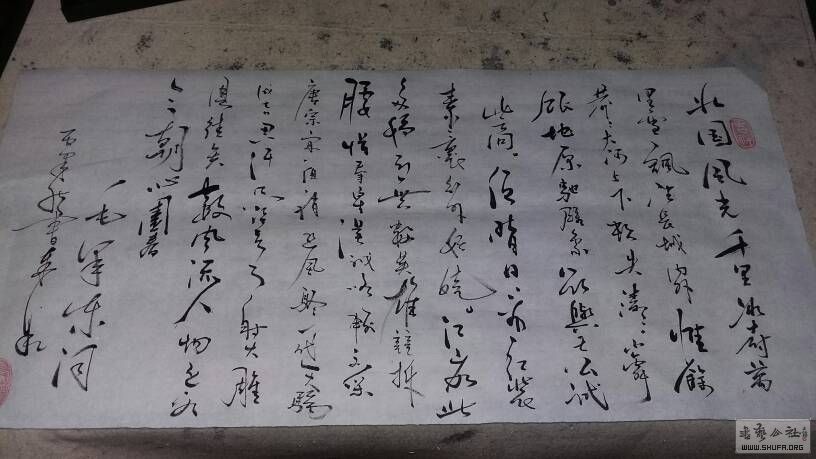 北国风光千里冰封萬
里雪飘望长城内惟餘
莽〻大河上下頓失滔〻山舞
银蛇原驰腊象欲與天公试
比高须晴日看红装
素裹分外妖娆江山如此
多娇引無數英雄競折
腰惜秦皇漢武略輸文采
唐宗宋祖稍逊风骚一代天驕
成吉思汗只识弯弓射大雕
俱往矣數风流人物还看
今朝沁園春
毛澤东词
书艺公社
WWW.SHUFA.ORG